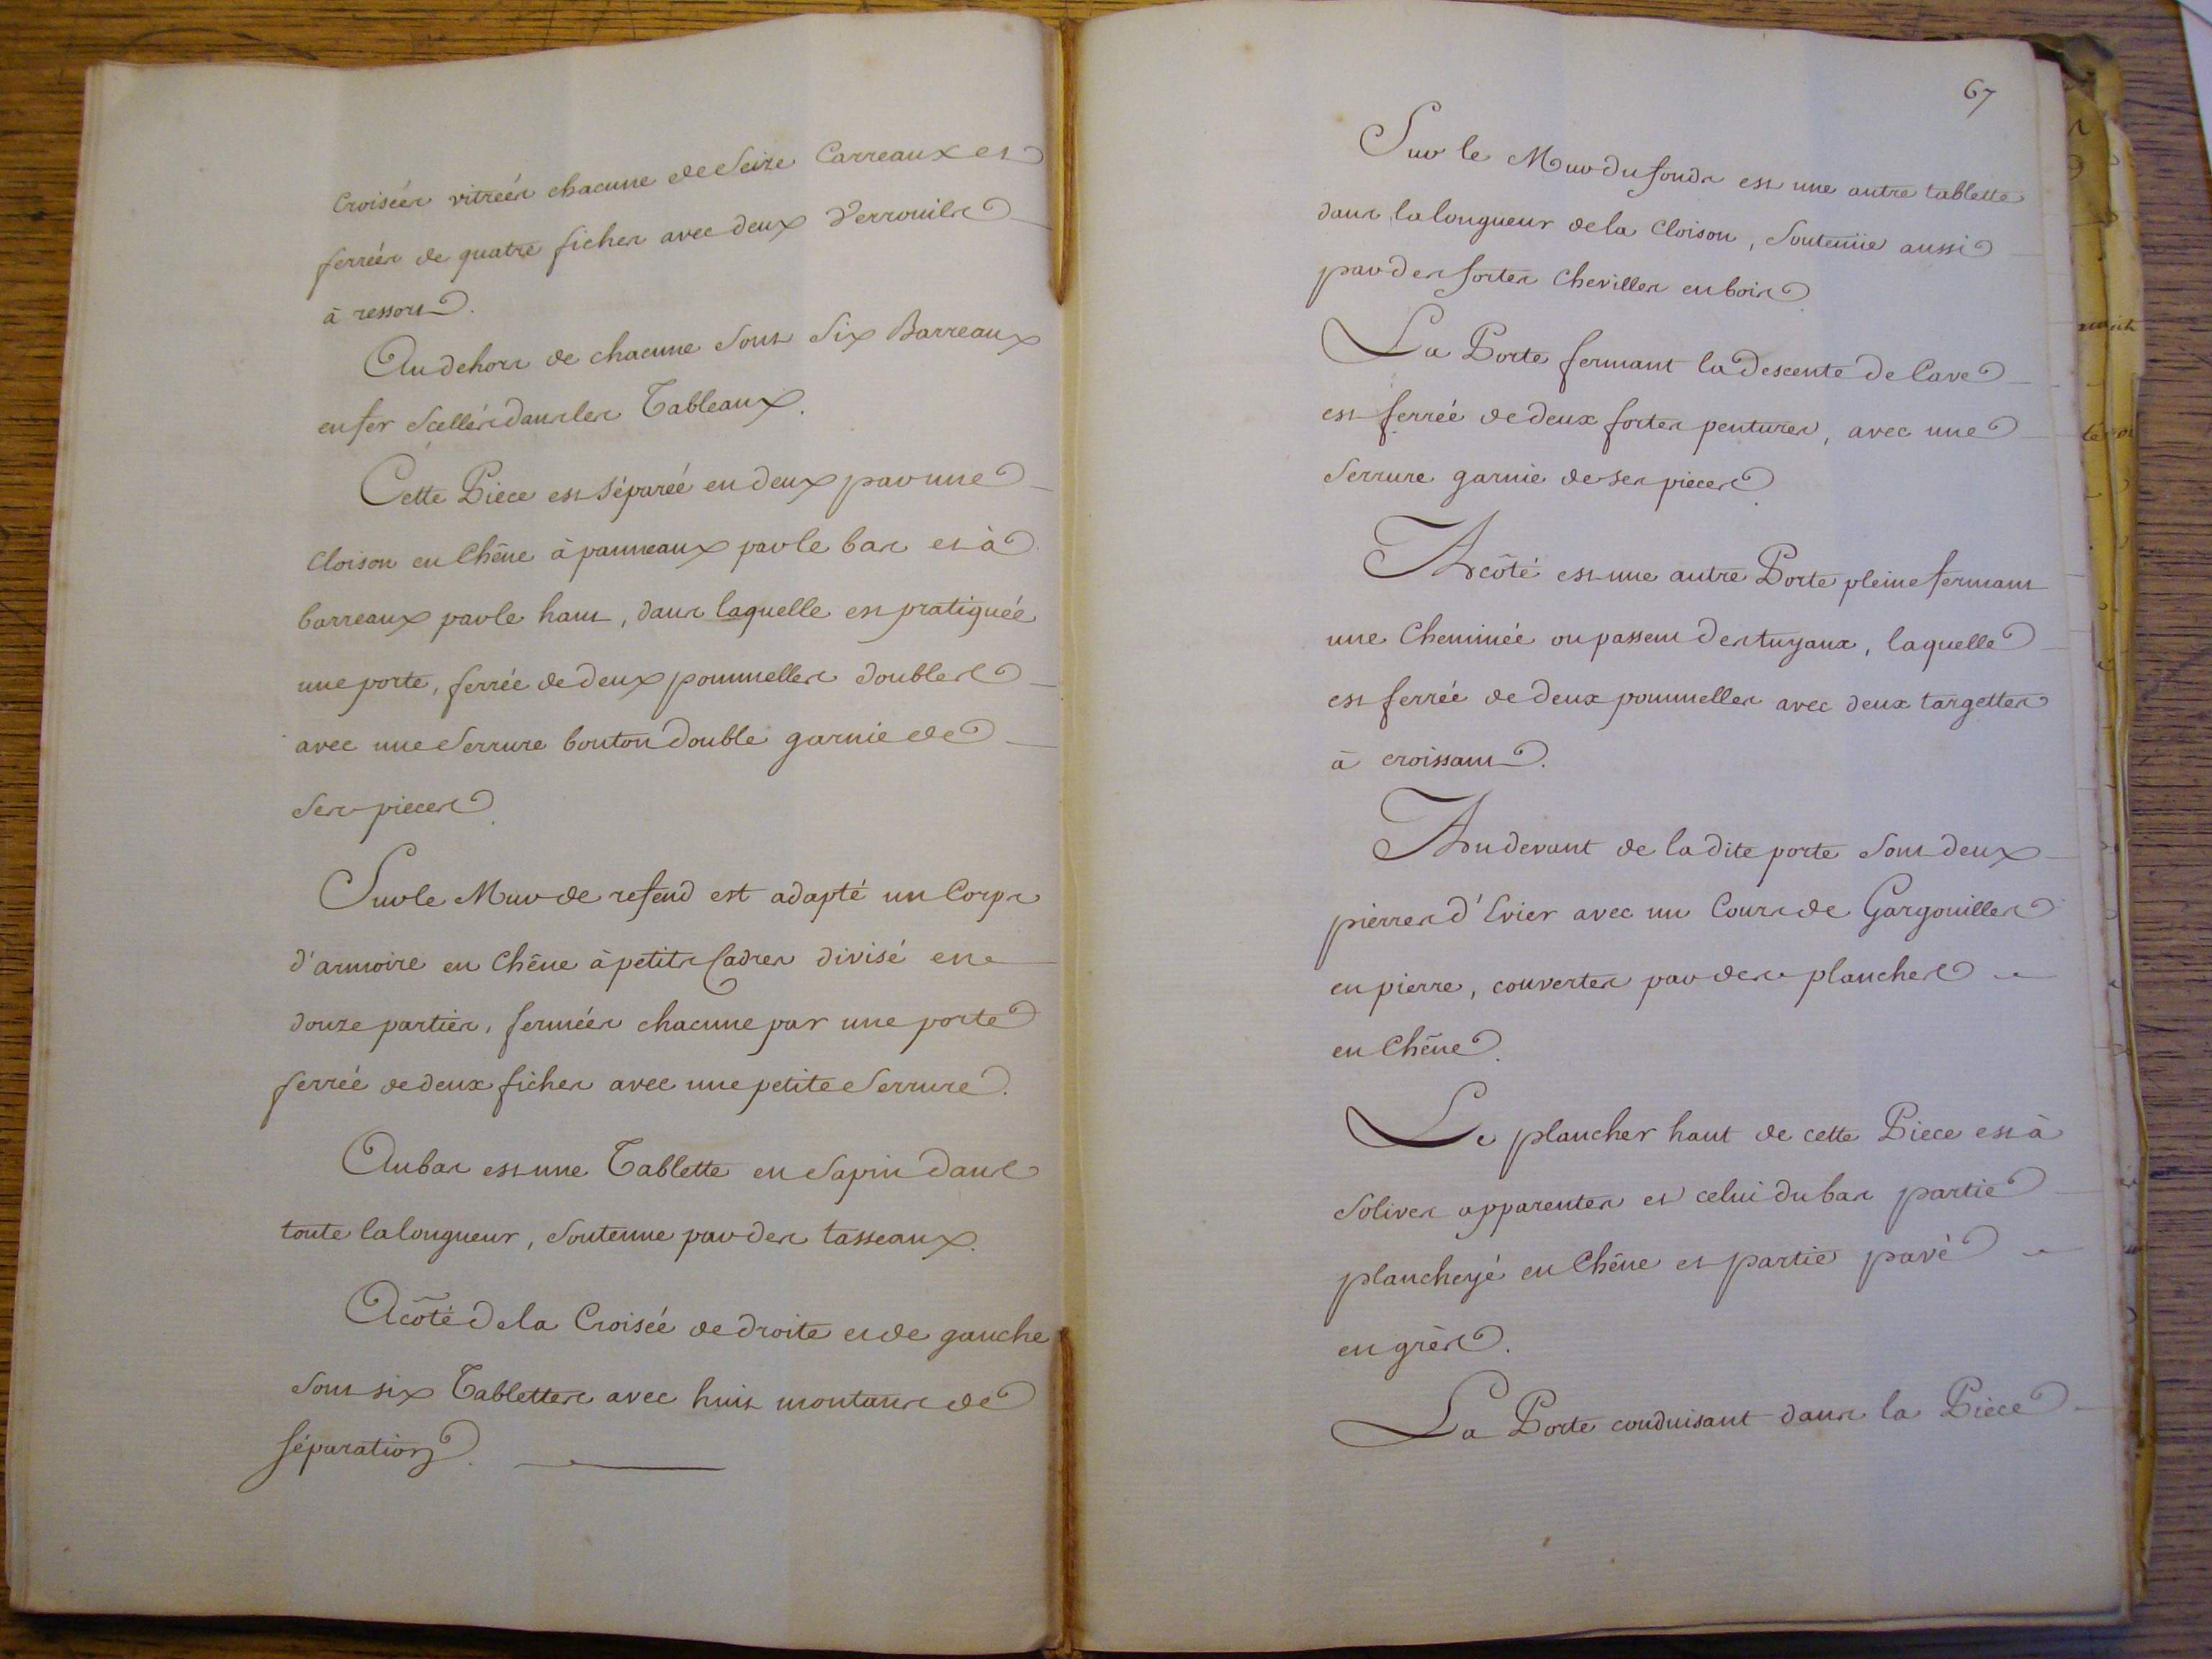 Croisées vitrées chacune de Seize Carreaux et
ferrées de quatre fiches avec deux Verrouils
à ressort.
Au dehors de chacune Sont Six Barreaux
en fer Scellés dans les Tableaux.
Cette Piece est Séparée en deux par une
Cloison en Chêne à panneaux par le bas et à
barreaux par le haut, dans laquelle est pratiquée
une porte, ferrée de deux pommelles doubles
avec une Serrure bouton double garnie de
Ses pieces.
Sur le Mur de refend est adapté un Corps
d'armoire en Chêne à petits Cadres divisé en
douze parties, fermées chacune par une porte
ferrée de deux fiches avec une petite Serrure.
Au bas est une Tablette en Sapin dans
toute la longueur, Soutenue par des tasseaux.
A côté de la Croisée de droite et de gauche
Sont six Tablettes avec huit montans de
Séparation.
67
Sur le Mur du fonds est une autre tablette
dans la longueur de la Cloison, Soutenüe aussi
par des fortes Chevilles en bois.
La Porte fermant la Descente de Cave
est ferrée de deux fortes pentures, avec une
Serrure garnie de ses pieces.
A côté est une autre Porte pleine fermant
une Cheminée ou passent des tuyaux, laquelle
est ferrée de deux pommelles avec deux targettes
à croissant.
Au devant de la dite porte Sont deux
pierres d'Evier avec un Cours de Gargouilles
en pierre, couvertes par des planches
en Chêne.
Le plancher haut de cette Piece est à
Solives apparentes et celui du bas partie
plancheyé en Chêne et partie pavé
en grès.
La Porte conduisant dans la Piece